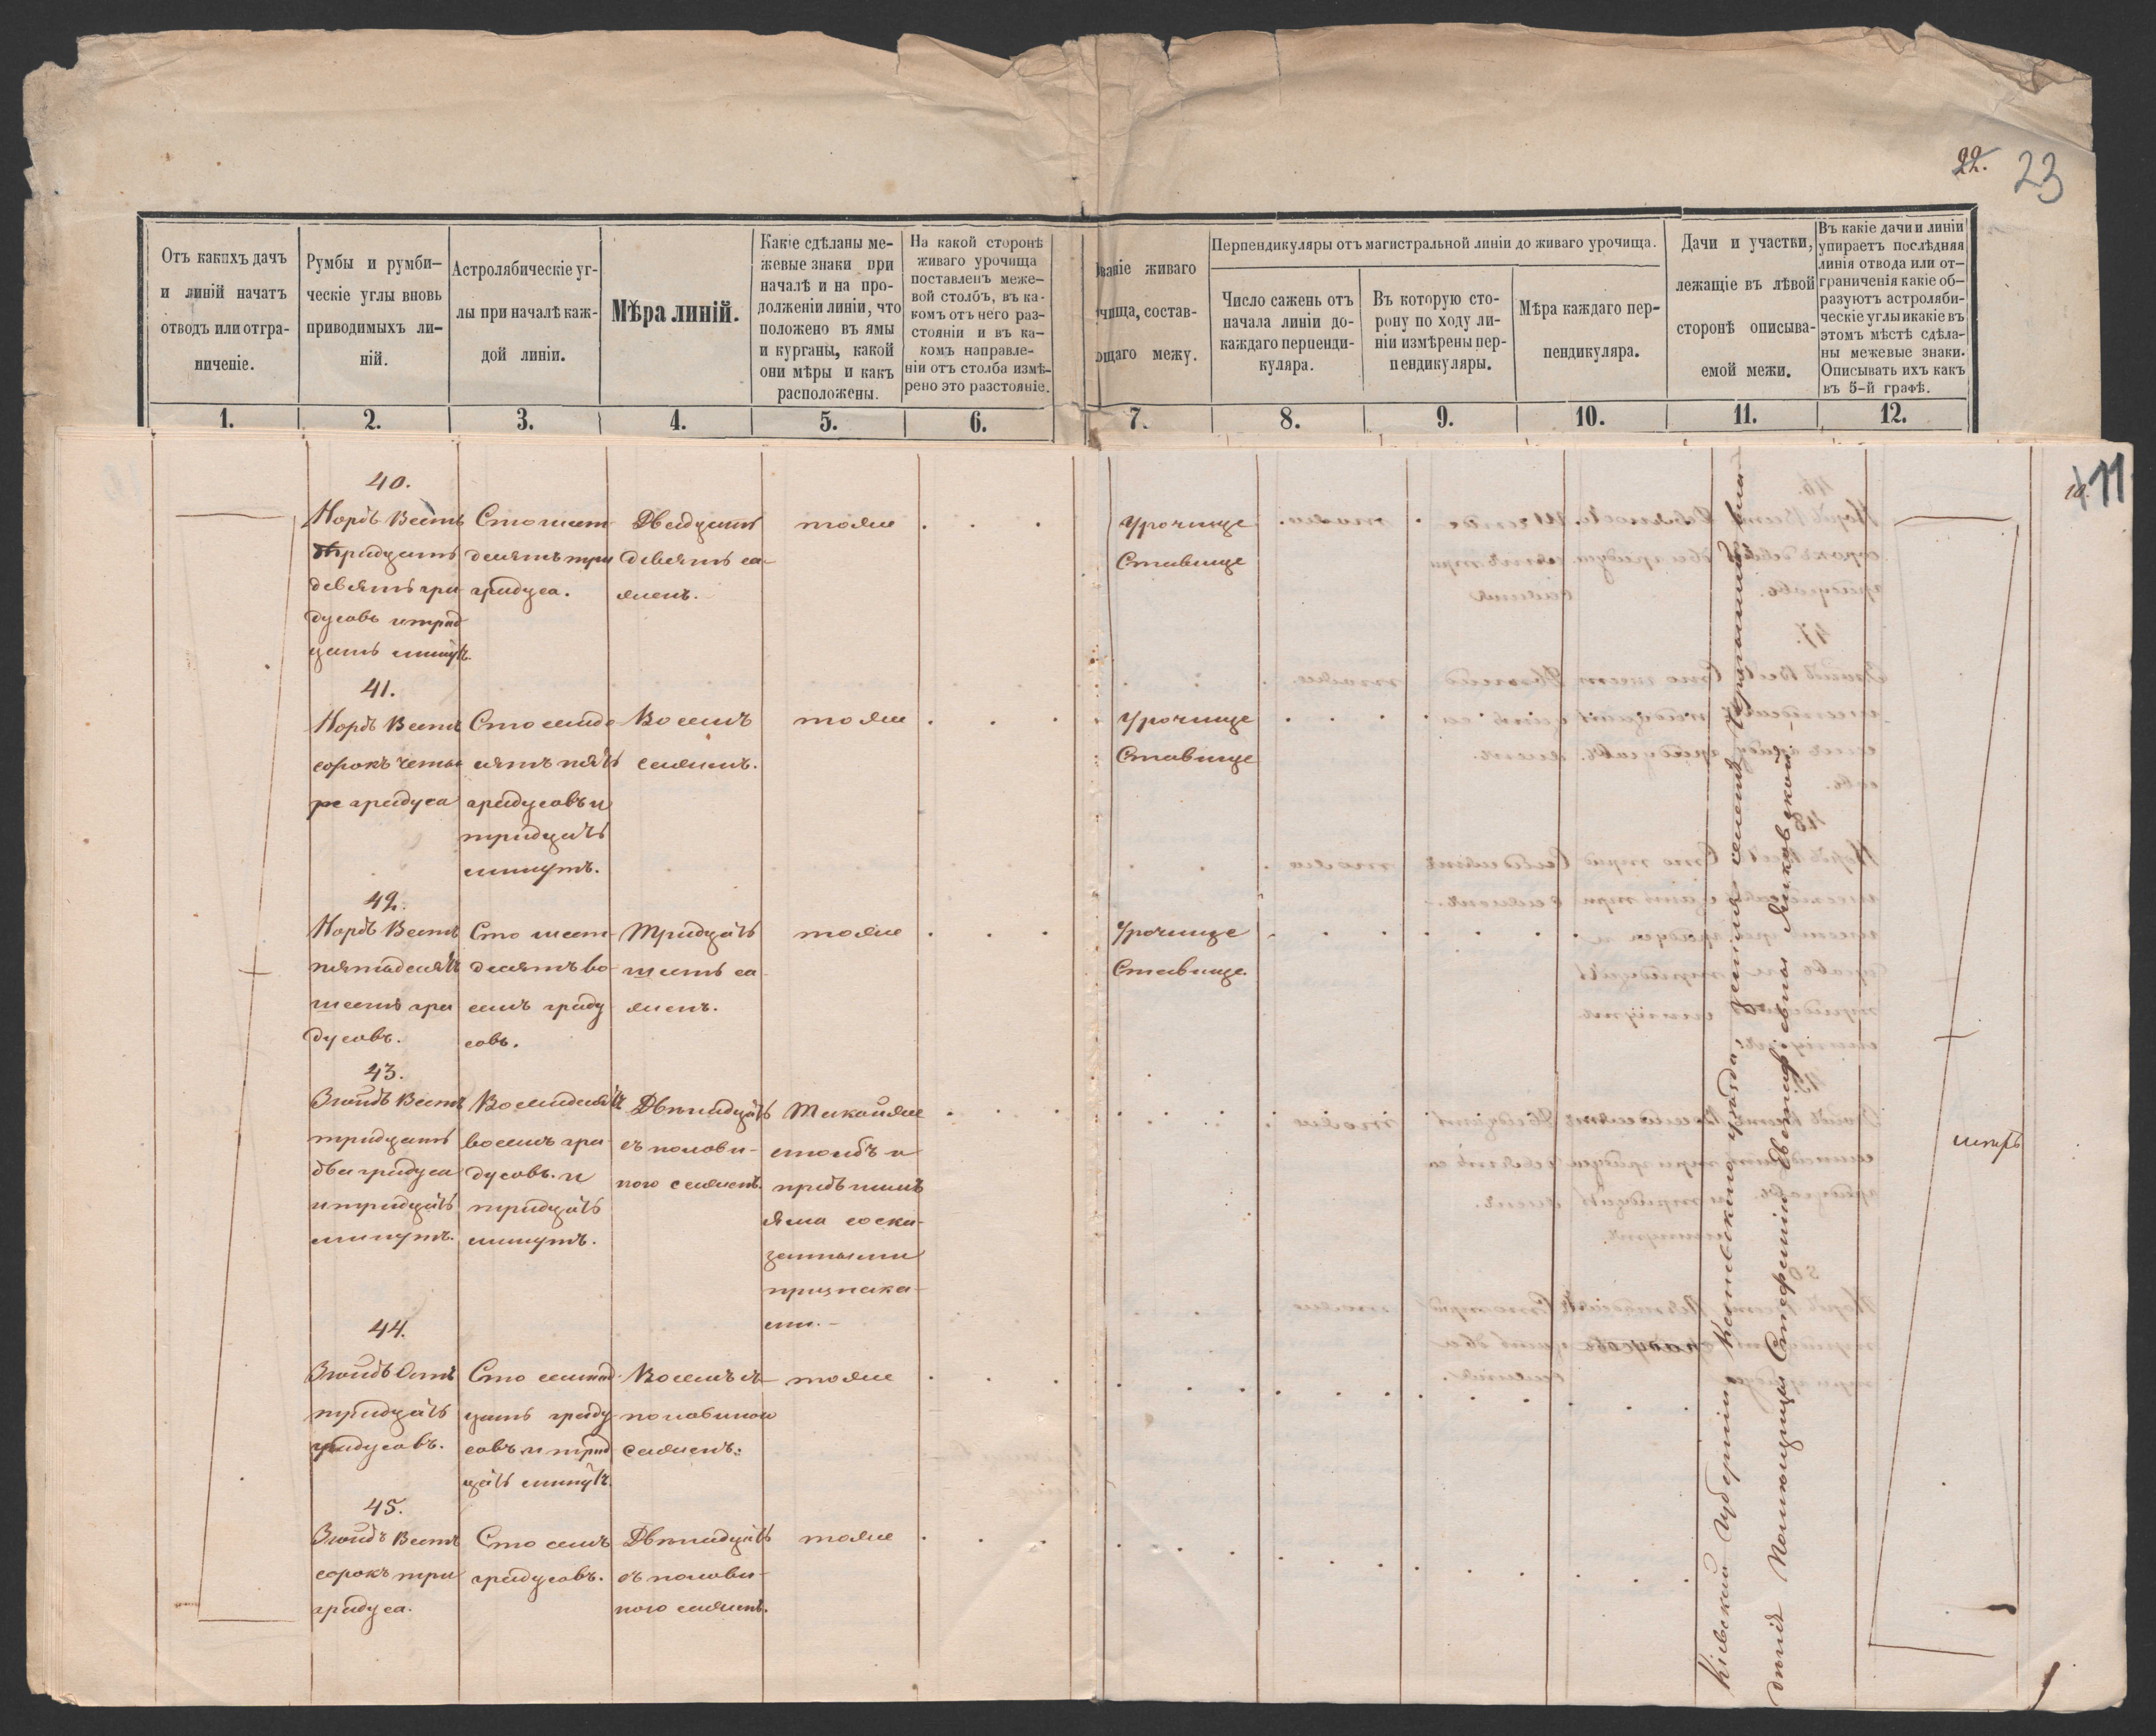 22. 23
Отъ какихъ дачъ
и линій начатъ
отводъ или отгра-
ниченіе.
Румбы и румби-
ческіе углы вновь
приводимыхъ ли-
ній.
Астролябическіе уг-
лы при началѣ каж-
дой линіи.
Мѣра линій.
Какіе сдѣланы ме-
жевые знаки при
началѣ и на про-
долженіи линіи, что
положено въ ямы
и курганы, какой
они мѣры и какъ
расположены.
На какой сторонѣ
живаго урочища
поставленъ меже-
вой столбъ, въ ка-
комъ отъ него раз-
стояніи и въ ка-
комъ направле-
ніи отъ столба измѣ-
рено это разстояніе.
званіе живаго
чища, состав-
ющаго межу.
Перпендикуляры отъ магистральной линіи до живаго урочища.
Число сажень отъ
начала линіи до-
каждаго перпенди-
куляра.
Въ которую сто-
рону по ходу ли-
ніи измѣрены пер-
пендикуляры.
Мѣра каждаго пер-
пендикуляра.
Дачи и участки,
лежащіе въ лѣвой
сторонѣ описыва-
емой межи.
Въ какіе дачи и линіи
упираетъ послѣдняя
линія отвода или от-
граниченія какіе об-
разуютъ астроляби-
ческіе углы и какіе въ
этомъ мѣстѣ сдѣла-
ны межевые знаки.
Описывать ихъ какъ
въ 5-й графѣ.
1. 2. 3. 4. 5. 6. 7. 8. 9. 10. 11. 12.
11
40.
Нордъ Вестъ
тридцать
девять гра-
дусовъ и трид
цать минутъ.
Сто шест-
десятъ три
градуса.
Двадцать
девять са-
женъ.
тоже
Урочище
Ставище
41.
Нордъ Вестъ
сорокъ четы
ре градуса
Сто семьде
сятъ пять
градусовъ и
тридцать
минутъ.
Восемь
саженъ.
тоже
Урочище
Ставище
42.
Нордъ Вестъ
пятьдесятъ
шесть гра
дусовъ.
Сто шест-
десятъ во-
семь граду
совъ.
Тридцать
шесть са-
женъ.
тоже
Урочище
Ставище.
43.
Зюйдъ Вестъ
тридцать
два градуса
и тридцать
минутъ.
Восемьдесятъ
восемь гра-
дусовъ и
тридцать
минутъ.
Двѣнадцать
съ полови-
ною саженъ.
Такой же
столбъ и
предъ нимъ
яма со ска-
занными
признака-
ми.
44.
Зюйдъ Остъ
тридцать
градусовъ.
Сто семнад-
цать граду
совъ и трид
цать минутъ.
Восемь съ
половиною
саженъ.
тоже
45.
Зюйдъ Вестъ
сорокъ три
градуса.
Сто семь
градусовъ.
Двѣнадцать
съ полови-
ною саженъ.
тоже
Кіевской Губерніи, Каневского уѣзда, земля селенія
дѣнія Помѣщицы Стефаніи